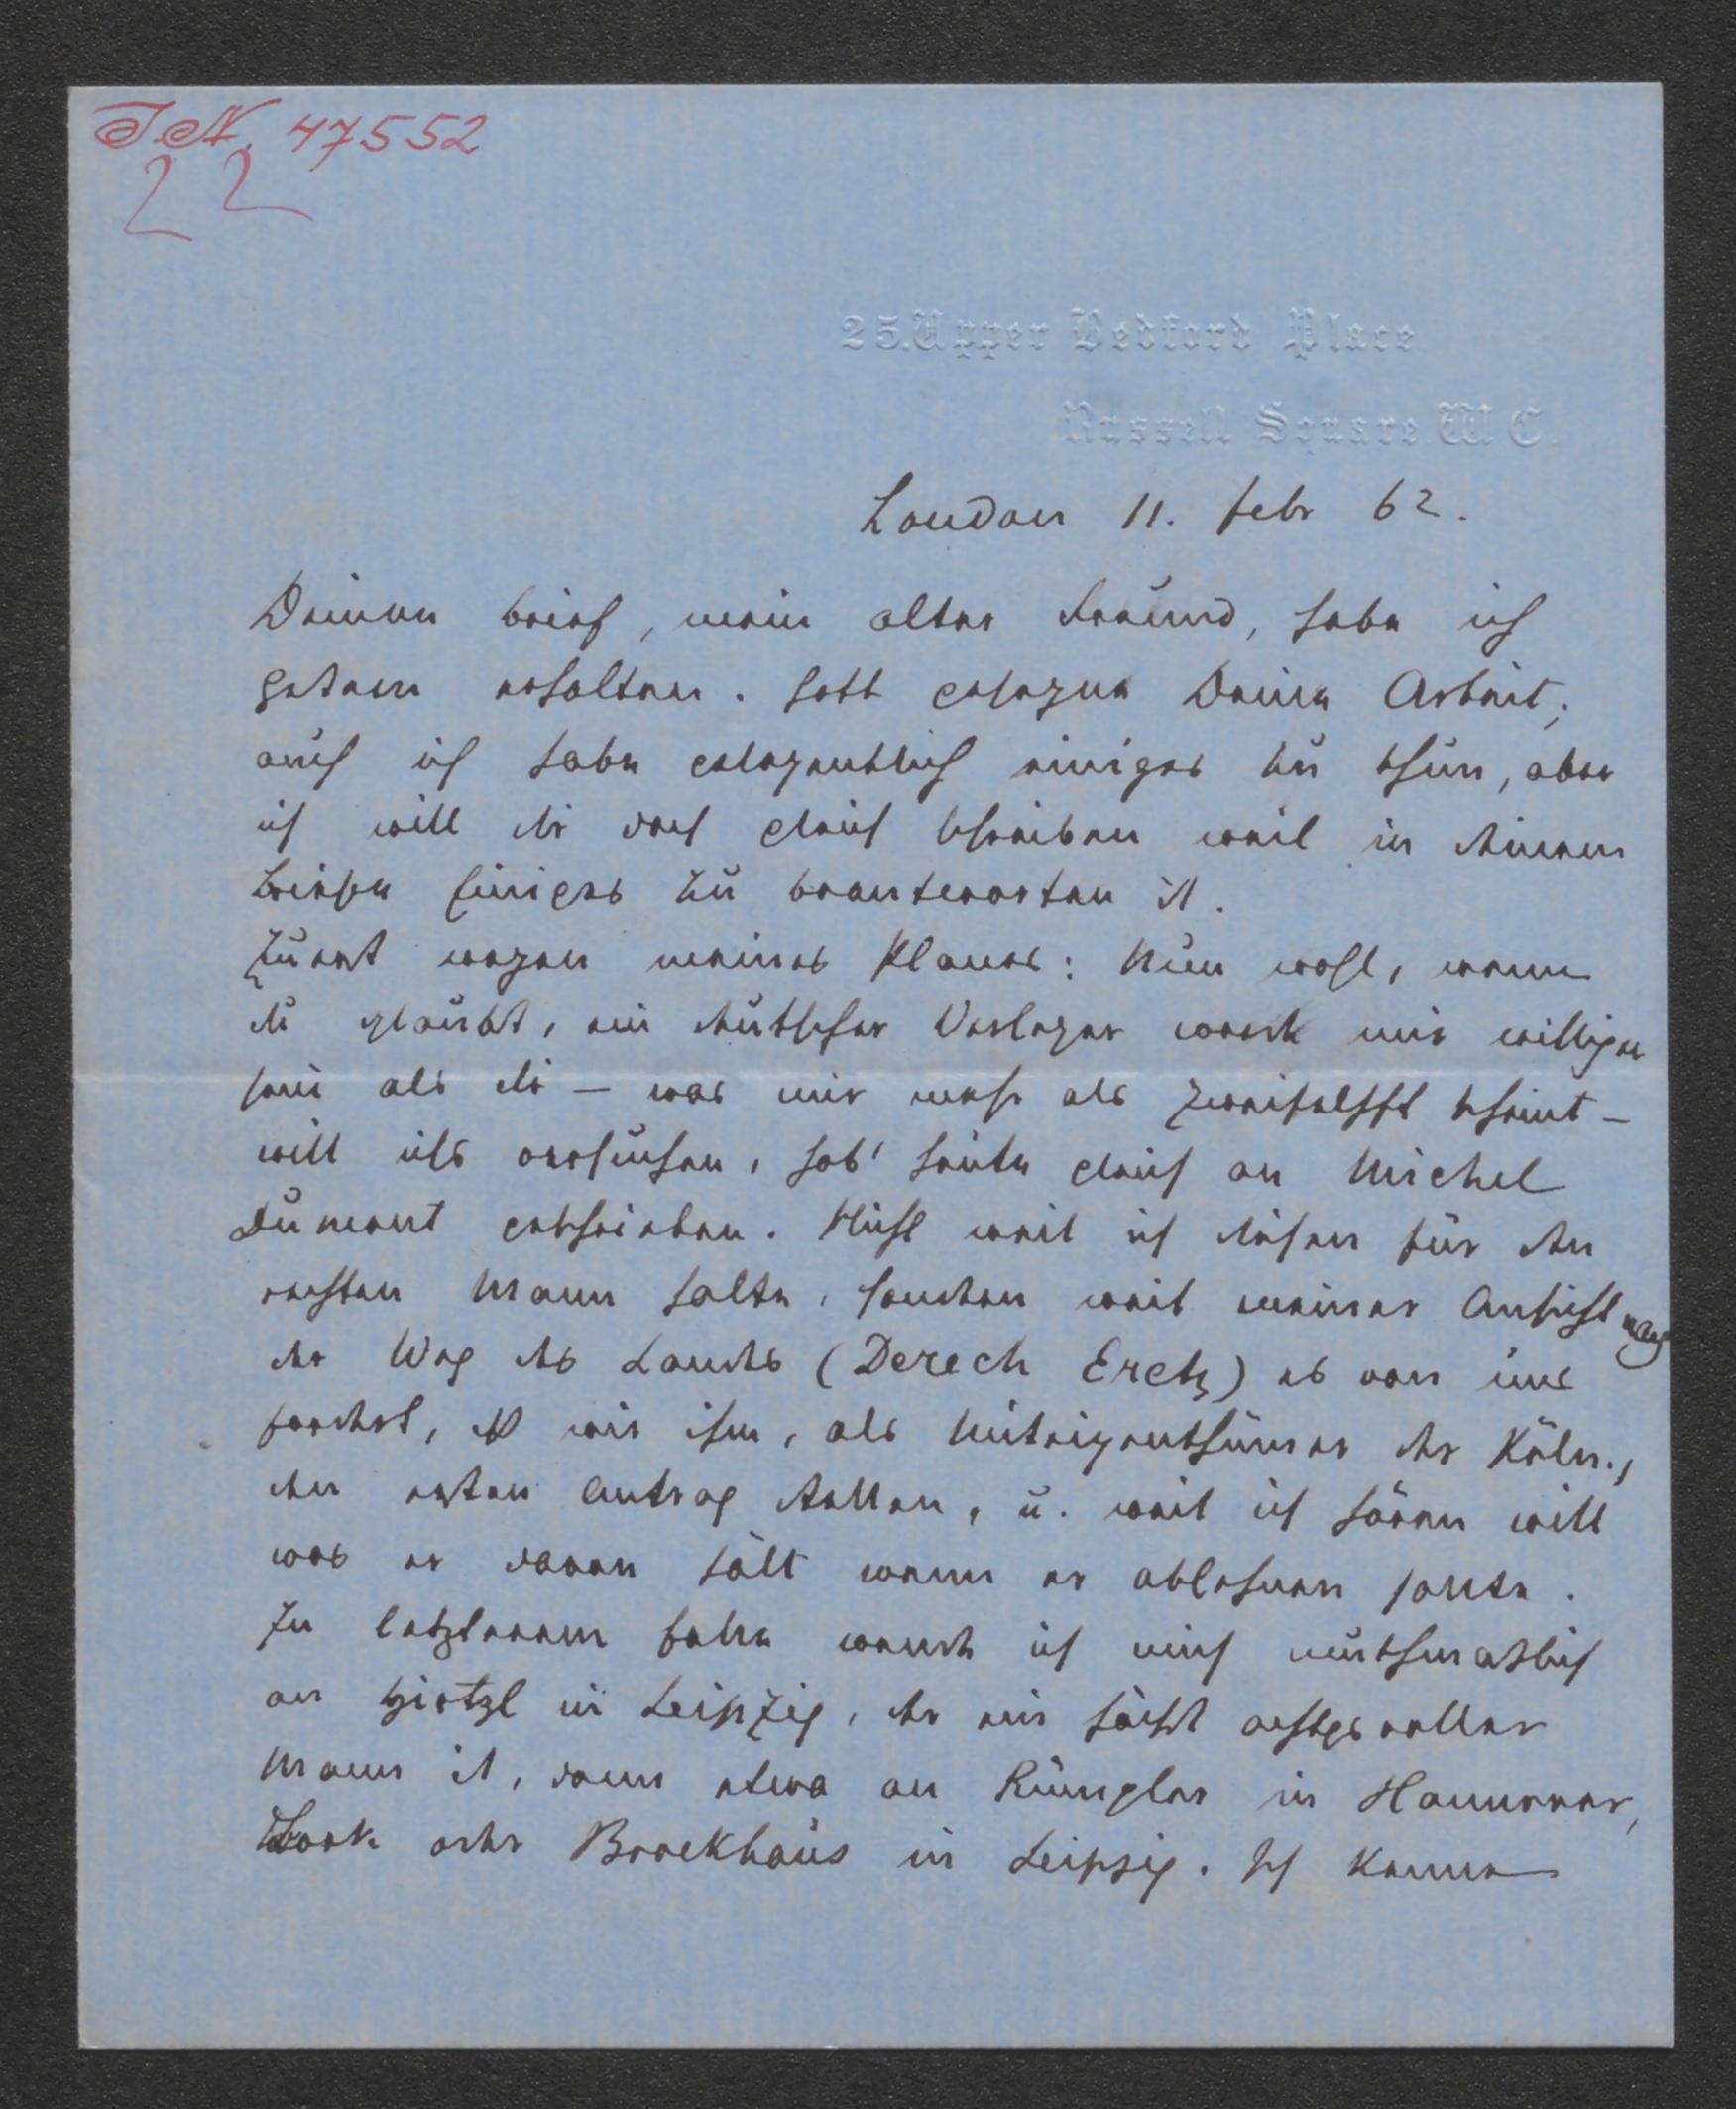 I.N. 47552
25. Upper Bedford Place
Russell Square W.C.
London 11. febr 62.
Deinen brief, mein alter Freund, habe ich
gestern erhalten. Gott gesegne Deine Arbeit;
auch ich habe gelegentlich einiges zu thun, aber
ich will dir doch gleich schreiben weil in deinem
briefe einiges zu beantworten ist.
Zuerst wegen meines Planes: Nun wohl, wenn
du glaubst, ein deutscher Verleger werde mir williger
sein als dir – was mir mehr als zweifelhft scheint –
will ichs versuchen, hab' heute gleich an Michel
Dumont geschrieben. Nicht weil ich diesen für den
rechten Mann halte, sondern weil meiner Ansicht nach
der Weg des Landes (Derech Eretz) es von uns
fordert, dß wir ihm, als Miteigenthümer der Köln.,
den ersten Antrag stellen, u. weil ich hören will
was er davon hält wenn er ablehnen sollte.
In letzterem falle wende ich mich muthmaßlich
an Hirtzl in Leipzig, der ein höchst achtgsvoller
Mann ist, dann etwa an Rümpler in Hannover,
oder Brockhaus in Leipzig. Ich kenne